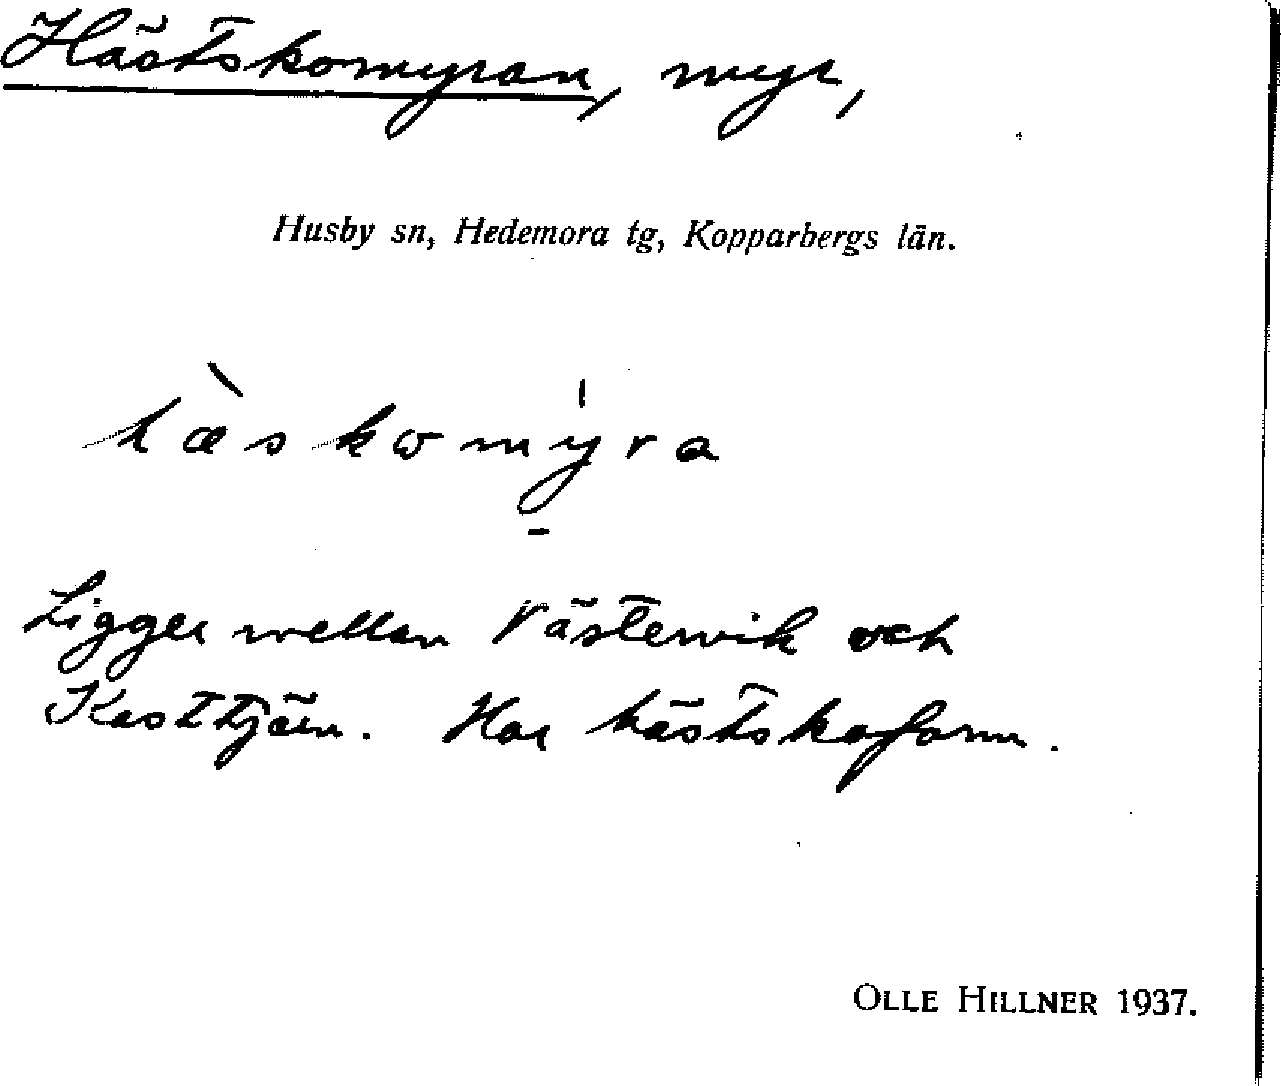 Hästskomyran, myr,
Husby sn, Hedemora tg, Kopparbergs län.
hæ̀skomýra
Ligger mellan Västervik och
Kasttjärn. Har hästskoform.
OLLE HILLNER 1937.